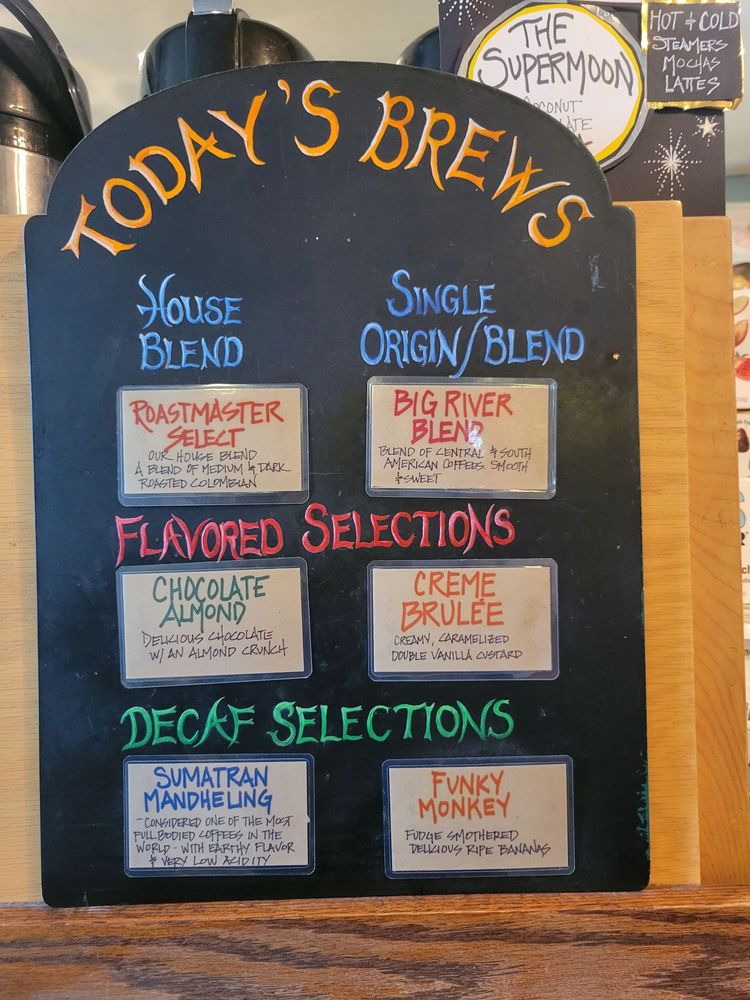 THE
SUPERMOON
HOT & COLD
STEAMERS
MOCHAS
LATTES
TODAY'S BREWS
HOUSE
BLEND
SINGLE
ORIGIN/BLEND
ROASTMASTER
SELECT
OUR HOUSE BLEND
A BLEND OF MEDIUM & DARK
ROASTED COLOMBIAN
BIG RIVER
BLEND
BLEND OF CENTRAL & SOUTH
AMERICAN COFFEES. SMOOTH
& SWEET
FLAVORED SELECTIONS
CHOCOLATE
ALMOND
DELICIOUS CHOCOLATE
W/ AN ALMOND CRUNCH
CREME
BRULÉE
CREAMY, CARAMELIZED
DOUBLE VANILLA CUSTARD
DECAF SELECTIONS
SUMATRAN
MANDHELING
- CONSIDERED ONE OF THE MOST
FULL BODIED COFFEES IN THE
WORLD - WITH EARTHY FLAVOR
& VERY LOW ACIDITY
FUNKY
MONKEY
FUDGE SMOTHERED
DELICIOUS RIPE BANANAS